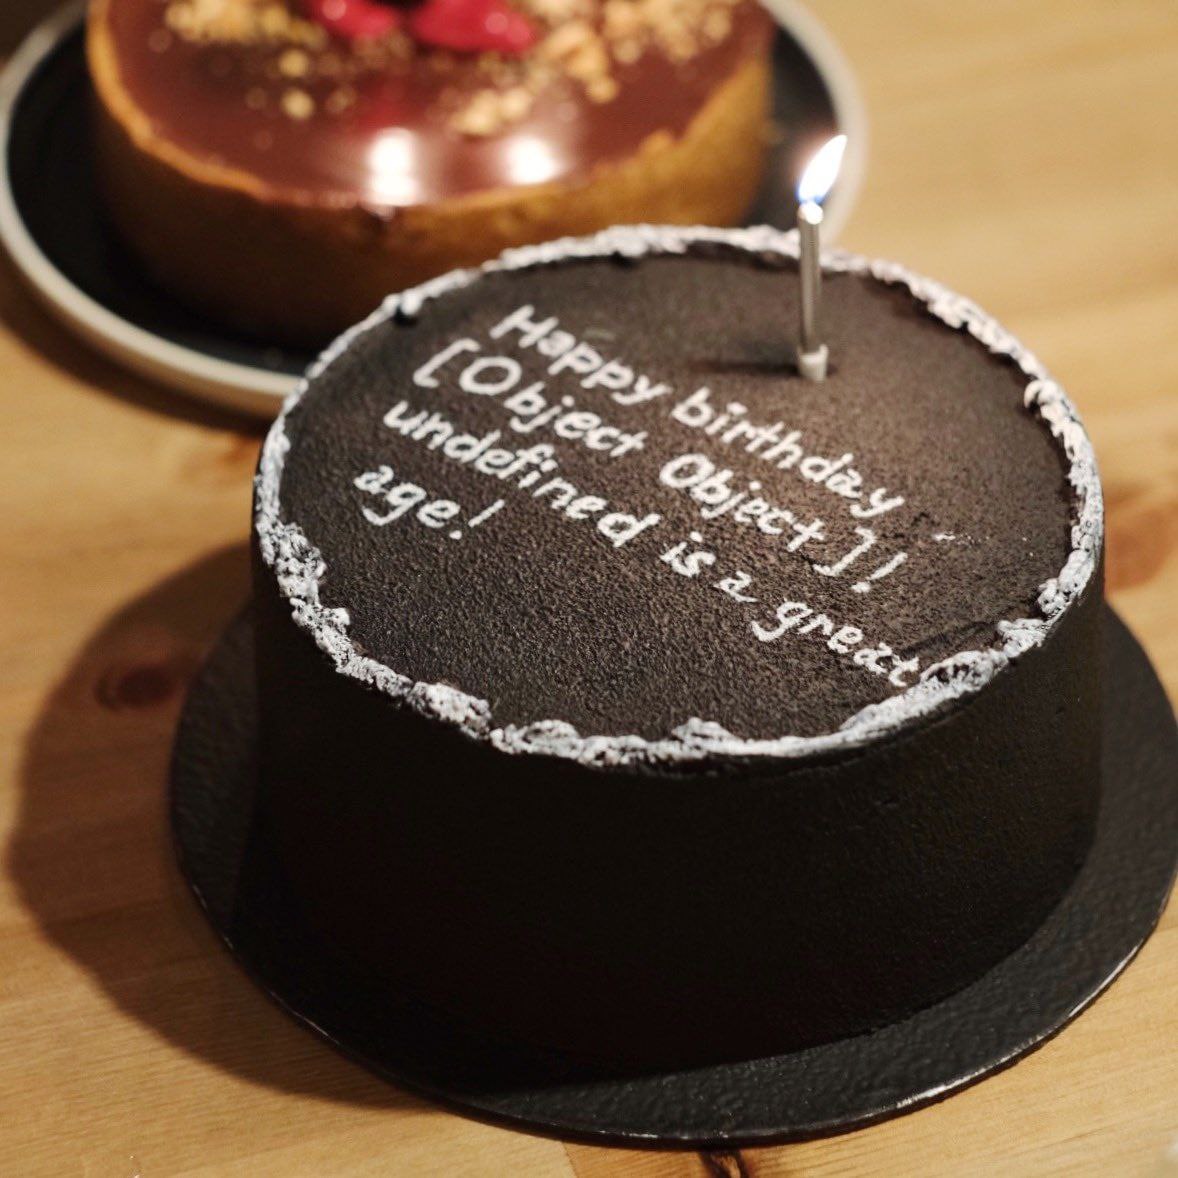 Happy birthday
[Object Object]!
undefined is a great
age!